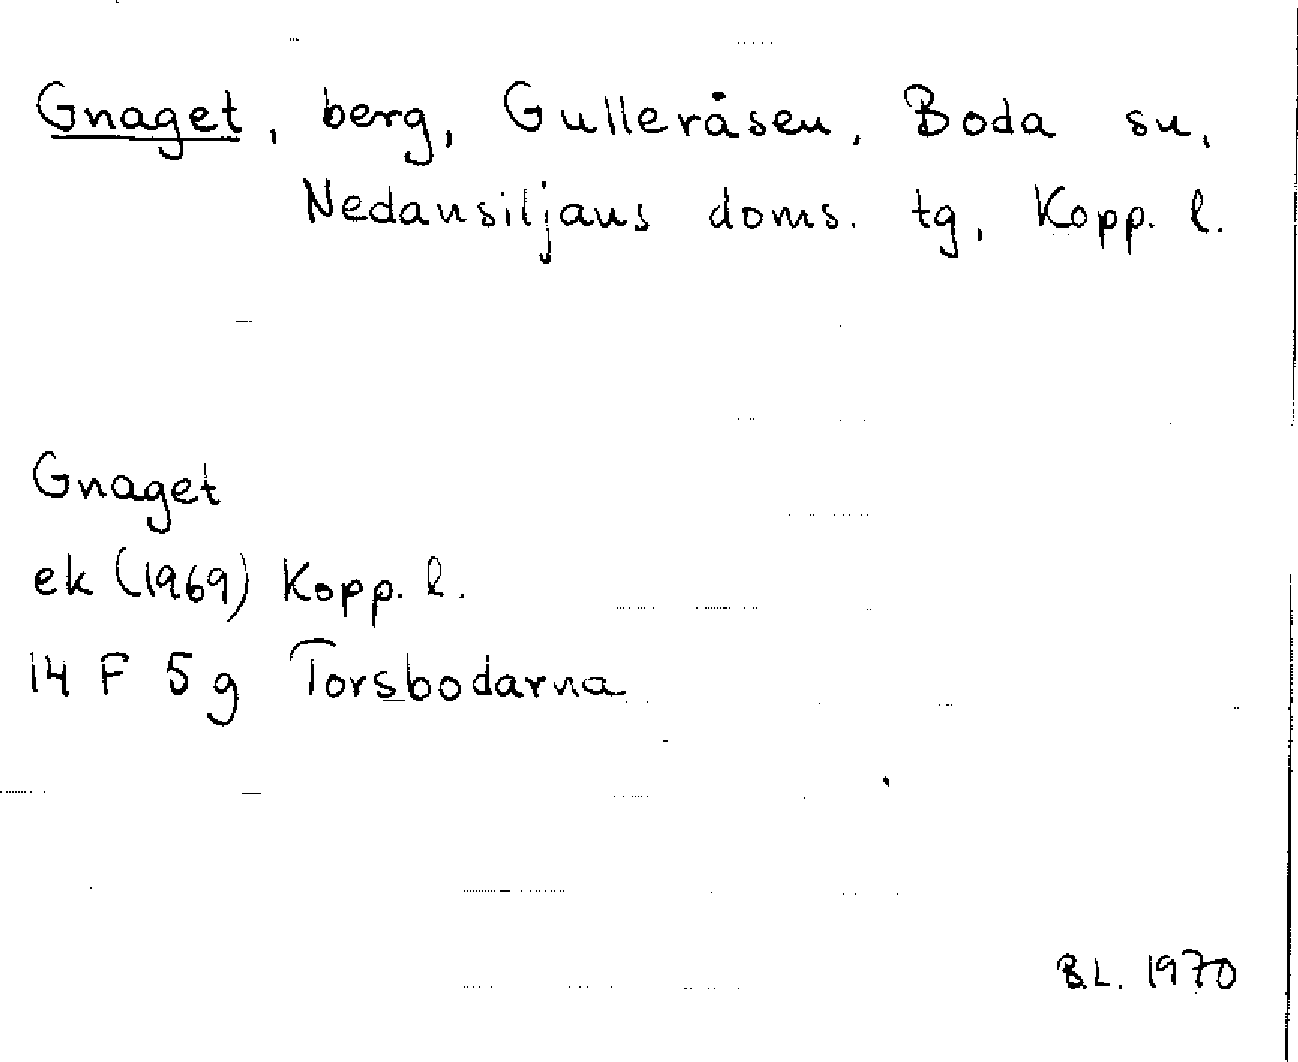 Gnaget, berg, Gulleråsen, Boda sn,
Nedansiljans doms. tg, Kopp. l.
Gnaget
ek (1969) Kopp. l.
14 F 5 g Torsbodarna
B.L. 1970